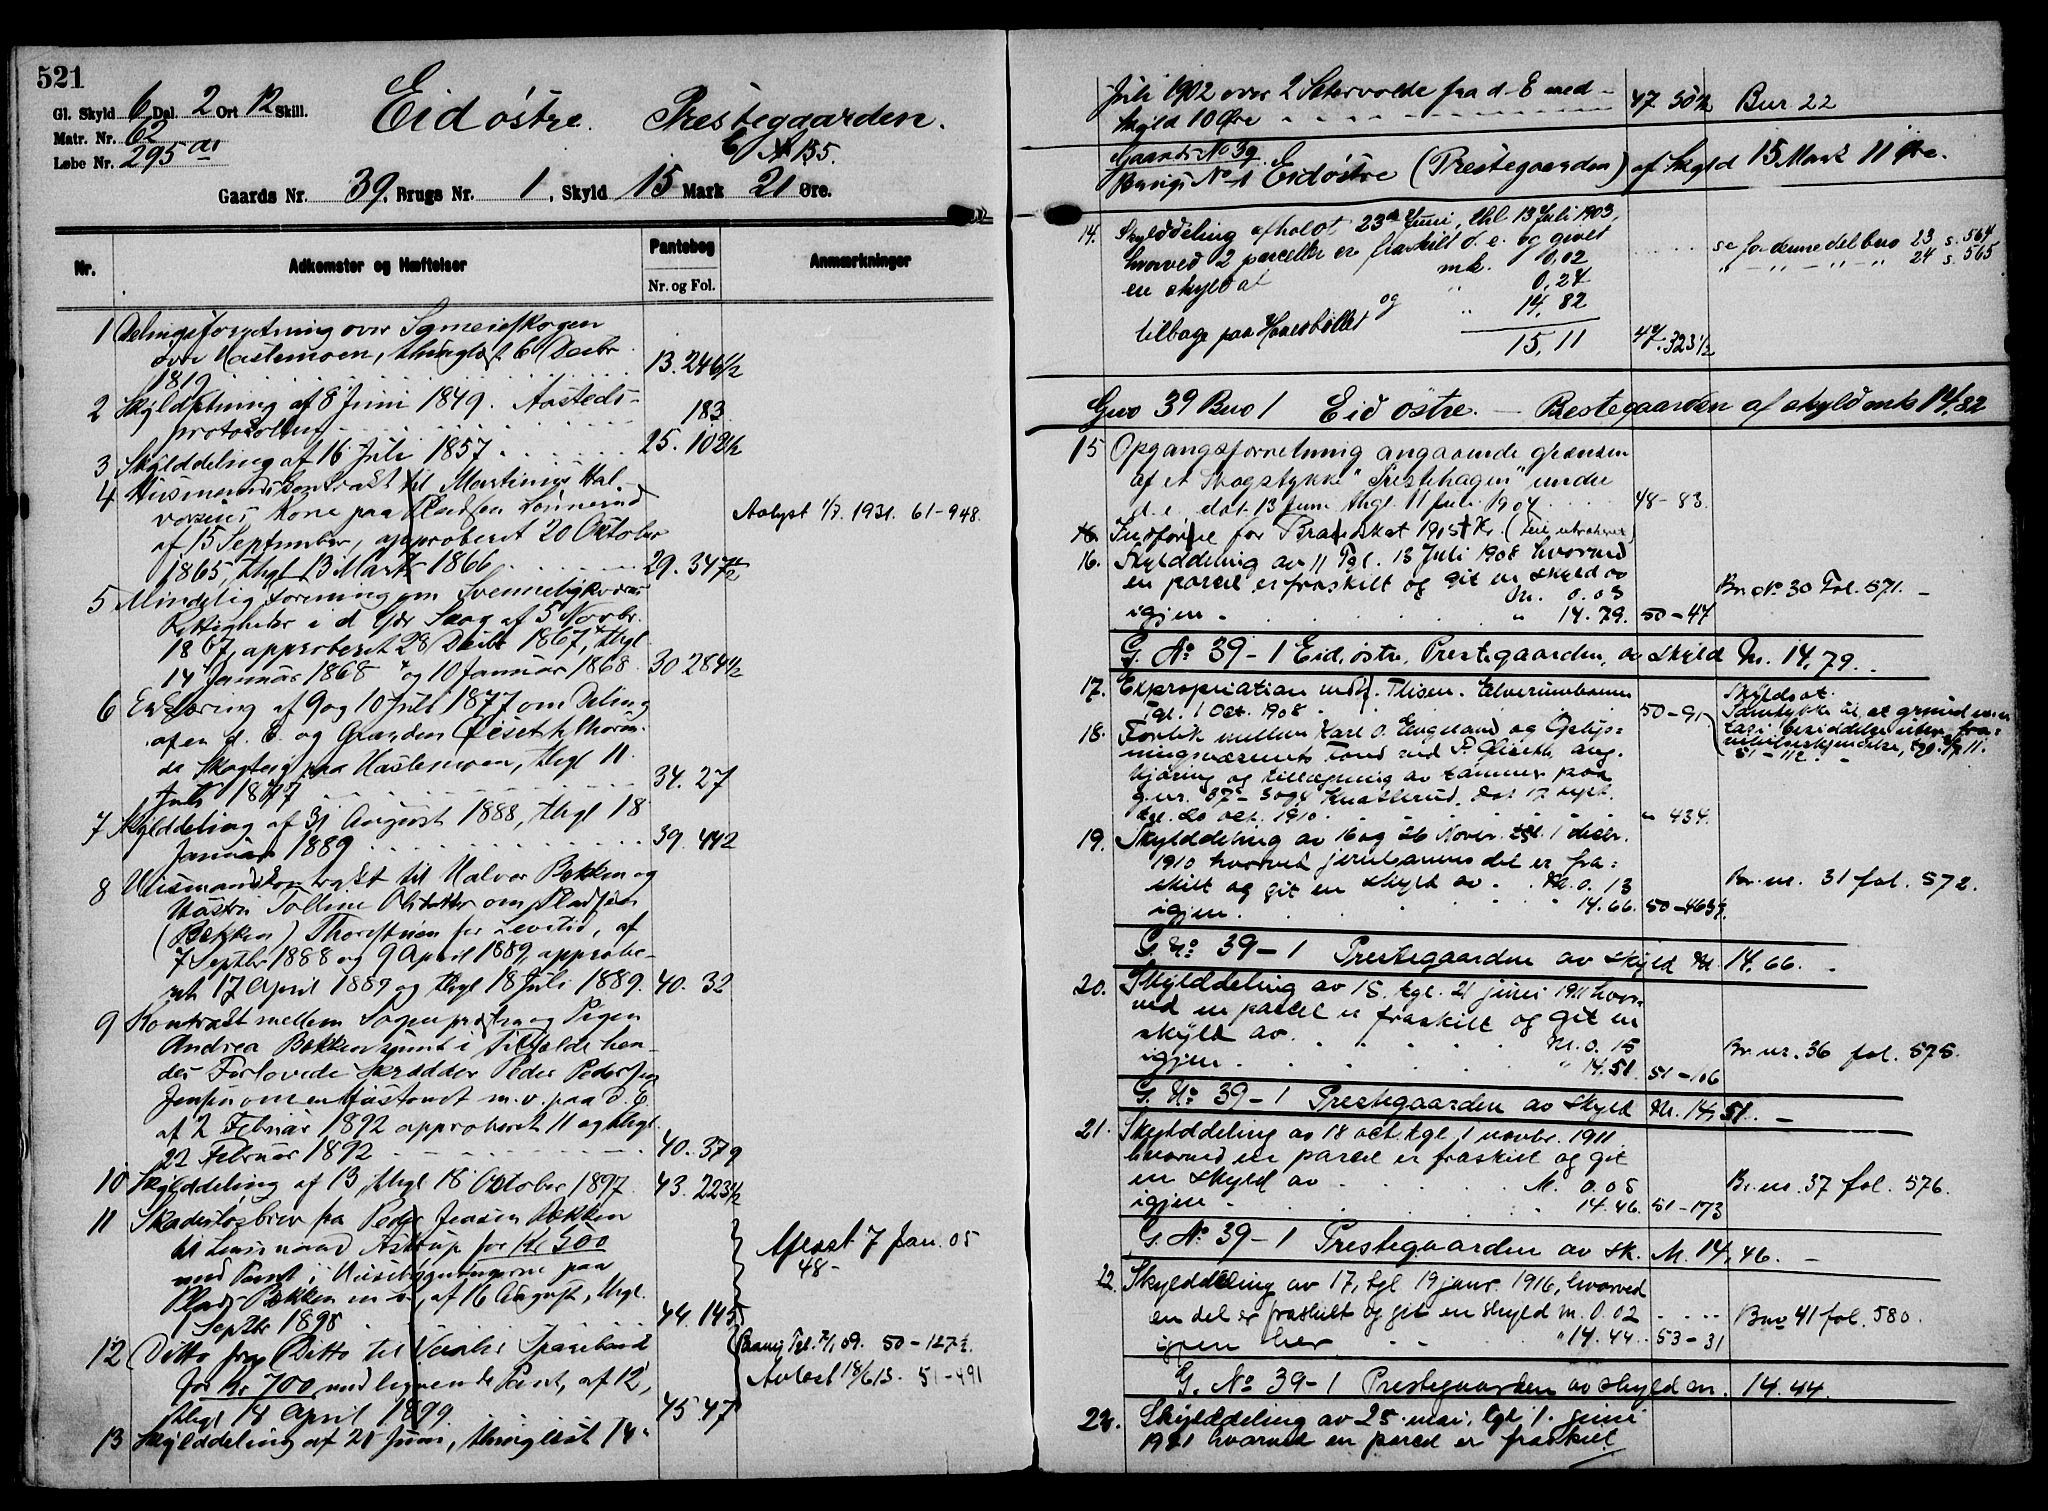 521
Gl. Skyld 6 Dal. 2 Ort 12 Skill.
Matr. Nr. 62
Løbe Nr. 295 a
Eid østre. Prestegaarden.
Gaards Nr. 39, Brugs Nr. 1, Skyld 15 Mark 21 Øre.
Nr. Adkomster og Hæftelser Pantebog Anmærkninger
Nr. og Fol.
1 Delingsforretning over Sameieskogen
thinglæst 6 Decbr
1819 13. 246 1/2
2 Skyldsetning af 8 Juni 1849. Aasteds-
protocollen 183
3 Skylddeling af 16 Juli 1857 25. 102 1/2
4 Husmandskontrakt til Martinus Hal-
vorsen, Kone paa Pladsen
af 15 September, approberet 20 Oktober
1865, thgl 13 Marts 1866 29. 347 1/2
Avlyst 1/7. 1931. 61-948.
5 Mindelig forening om
Rettigheder i d. Gds Skog af 5 Novbr.
1867, approberet 28 Decbr 1867, thgl
14 Januar 1868 og 10 Januar 1868 30 284 1/2
6 Erklæring af 9 og 10 Juli 1877 om Deling
af en d. E. og Gaarden
de Skogteig paa Hastemoen, thgl 11
Juli 1877 34. 27
7 Skylddeling af 31 August 1888, thgl 18
Januar 1889 39. 442
8 Husmandskontrakt til Halvor Bekken og
Hustru Olsdatter om Pladsen
(Bekken) for Levetid, af
7 Septbr 1888 og 9 April 1889, approbe-
ret 17 April 1889 og thgl 18 Juli 1889. 40. 32
9 Kontrakt mellem Sognepresten og Pigen
Andrea Bekken samt i Tilfælde hen-
des Forlovede Skrædder Peder Pedersen
Jensen om en Hustomt m.v. paa d. E.
af 2 Februar 1892 approberet 11 og thgl.
22 Februar 1892 40. 379
10 Skylddeling af 13, thgl 18 Oktober 1897 43. 223 1/2
11 Skadesløsbrev fra Peder Jensen Bekken
til Lensmand Astrup for Kr 500
med Pant i Husebygningerne paa
Plads Bekken m v, af 16 August, thgl.
1 Septbr 1898 44. 145
Aflæst 7 Jan. 05
48-
12 Ditto fra Ditto til Sparebank
for Kr 700 med lignende Pant, af 12,
thgl 14 April 1899. 45. 47
50-127 1/2.
Avlæst 18/6 13. 51-491
13 Skylddeling af 21 Juni, thinglæst 14
Juli 1902 over 2 Sætervolde fra d. E med
Skyld 10 Øre 47 50 1/2 Bnr 22
Gaards No 39
Brugs No 1 Eid østre (Prestegaarden) af Skyld 15 Mark 11 Øre.
14. Skylddeling afholdt 23de Juni, thl. 13 Juli 1903,
hvorved 2 parceller er fraskilt d. e. og givet
en skyld af mk. 0,02 se for denne del bno 23 s. 564
" 0,27 " " " " " 24 s. 565
tilbage paa Hovedbøllet og " 14,82
15,11 47.323 1/2
Gno 39 Bno 1 Eid østre. - Prestegaarden af skyld mk 14,82
15 Opgangsforretning angaaende grænsen
af et Skogstykke "Prestehagen" under
d. e. dat. 13 Juni thgl. 11 Juli 1904 48-83.
16. Skylddeling av 11 tgl. 13 Juli 1908 hvorved
en parcel er fraskilt og git en skyld av
M. 0.03 Br No 30 Fol. 571.
igjen " 14.79. 50-47
G. No 39-1 Eid, østre, Prestegaarden, av skyld M. 14,79.
17. Expropriation
tgl. 1 Oct. 1908 50-91
18. Forlik mellem Karl O. Engelund og Oplys-
ningsvæsenets Fond ved P. ang.
kjøring og tillægning av tømmer paa
dat 17 sept.
tgl. 20 oct. 1910 " 434.
19. Skylddeling av 16 og 26 Novbr. tgl. 1 decbr.
1910 hvorved jernbanens del er fra=
skilt og git en skyld av M. 0.13 Br. nr. 31 fol. 572.
igjen " 14.66. 50-463 1/2
G. No 39-1 Prestegaarden av skyld M. 14,66.
20. Skylddeling av 15. tgl. 21 juni 1911 hvor-
ved en parcel er fraskilt og git en
skyld av M. 0.15 Br. nr. 36 fol. 575.
igjen " 14.51. 51-106
G. No 39-1 Prestegaarden av skyld M. 14,51.
21. Skylddeling av 18 oct. tgl. 1 novbr. 1911
hvorved en parcel er fraskilt og git
en skyld av M. 0.05 Br. nr. 37 fol. 576.
igjen 14.46. 51-173
G. No 39-1 Prestegaarden av sk. M. 14,46.
22. Skylddeling av 17, tgl 19 janr. 1916, hvorved
en del er fraskilt og git en skyld m. 0.02 Bno 41 fol. 580.
igjen her " 14.44 53-31
G. No 39-1 Prestegaarden av skyld m. 14.44.
23. Skylddeling av 25. mai, tgl. 1. juni
1921 hvorved en parcel er fraskilt